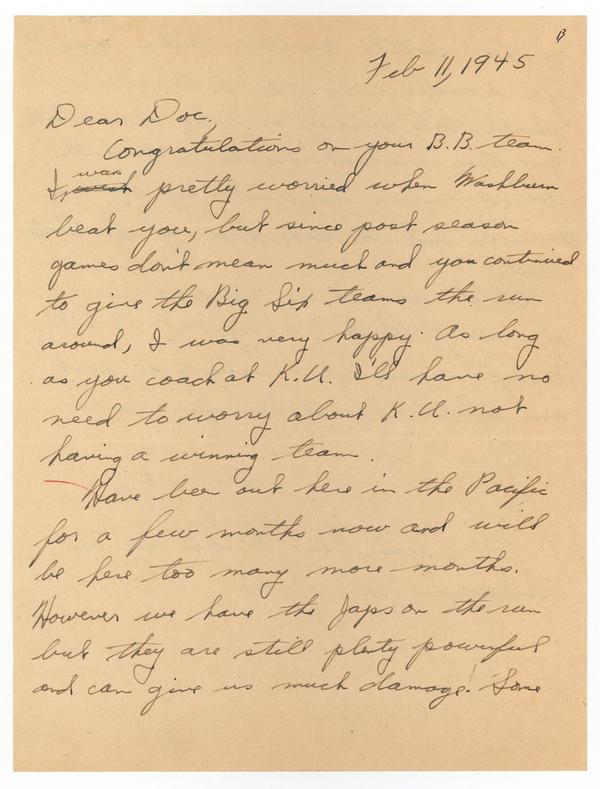 Feb 11, 1945
Dear Doc,
Congratulations on your B.B. team.
I was pretty worried when Washburn
beat you, but since post season
games don't mean much and you continued
to give the Big Six teams the run
around, I was very happy. As long
as you coach at K.U. I'll have no
need to worry about K.U. not
having a winning team.
Have been out here in the Pacific
for a few months now and will
be here too many more months.
However we have the Japs on the run
but they are still plenty powerful
and can give us much damage. Some